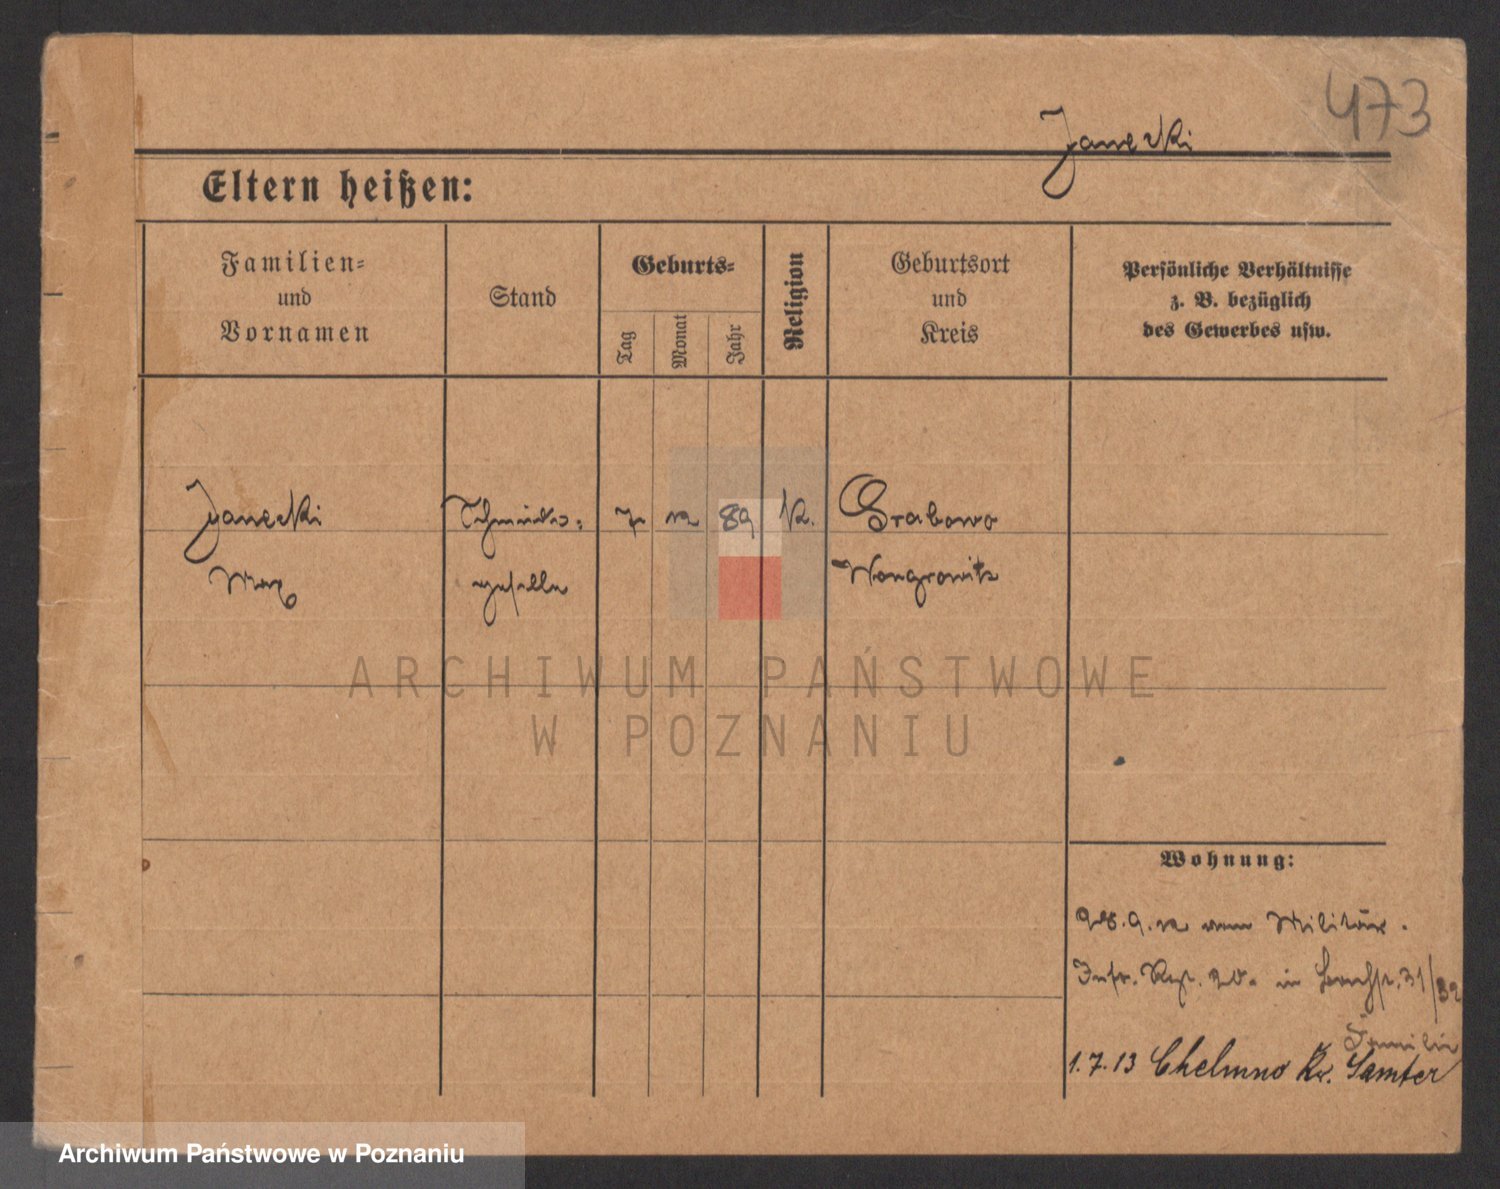 473
Janecki
Eltern heißen:
Familien-
und
Vornamen
Stand
Geburts-
Tag
Monat
Jahr
Religion
Geburtsort
und
Kreis
Persönliche Verhältnisse
z. B. bezüglich
des Gewerbes usw.
Janecki
Max
Schmiede-
geselle
7
12
89
k.
Grabowo
Wongrowitz
ARCHIWUM PAŃSTWOWE
W POZNANIU
Wohnung:
28.9.12 vom Militär.
Inft. Regt. 20. in 31/32
Familie
1.7.13 Chelmno Kr. Samter
Archiwum Państwowe w Poznaniu